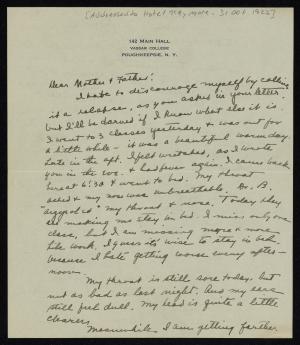 [Addressed to Hotel Traymore - 31 Oct 1922]
142 MAIN HALL
VASSAR COLLEGE
POUGHKEEPSIE, N. Y.
Dear Mother & Father:
I hate to discourage myself by calling
it a relapse, as you asked in your letter,
but I'll be darned if I know what else it is.
I went to 3 classes yesterday & was out for
a little while - it was a beautiful warm day.
Late in the aft. I felt wretched, as I wrote
you in the eve. & had fever again. I came back
here at 6:30 & went to bed. My throat
ached & my nose was unbreathable. Dr. B.
my throat & nose. Today they
are making me stay in bed. I miss only one
class, but I am missing more & more
lab work. I guess it's wise to stay in bed,
because I hate getting worse every after-
noon.
My throat is still sore today, but
not as bad as last night. And my ears
still feel dull. My head is quite a little
clearer.
Meanwhile I am getting farther